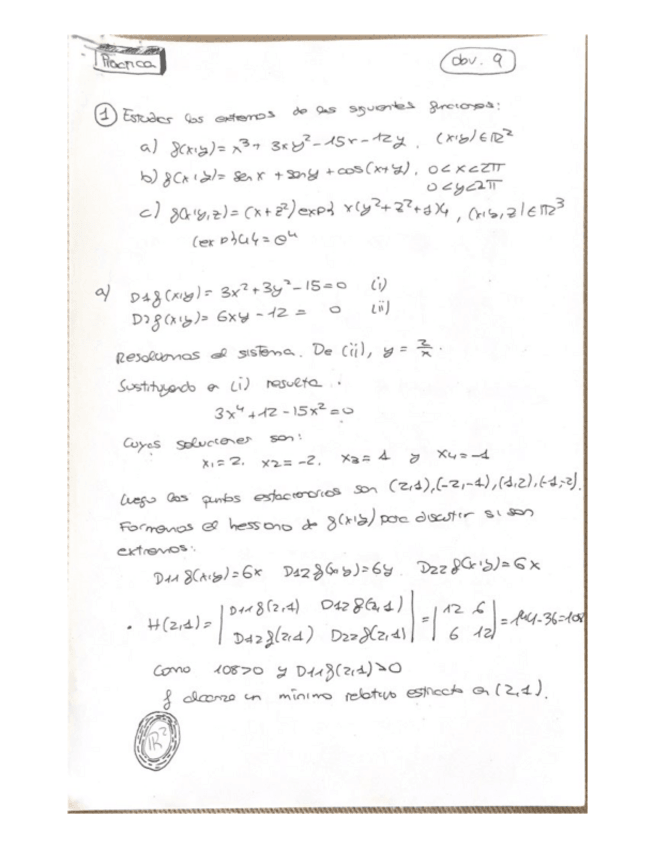 Práctica
obv. 9
① Estudiar los extremos de las siguientes funciones:
a) f(x,y) = x³ + 3xy² - 15x - 12y, (x,y) ∈ ℝ²
b) f(x,y) = sen x + sen y + cos(x+y), 0 < x < 2π
0 < y < 2π
c) f(x,y,z) = (x+z²) exp{ x(y²+z²+1)}, (x,y,z) ∈ ℝ³
(exp{u} = eᵘ
a) D1f(x,y) = 3x² + 3y² - 15 = 0 (i)
D2f(x,y) = 6xy - 12 = 0 (ii)
Resolvamos el sistema. De (ii), y = 2/x.
Sustituyendo en (i) resulta:
3x⁴ + 12 - 15x² = 0
Cuyas soluciones son:
x1 = 2, x2 = -2, x3 = 1 y x4 = -1
Luego los puntos estacionarios son (2,1), (-2,-1), (1,2), (-1,-2).
Formemos el hessiano de f(x,y) para discutir si son
extremos:
D11f(x,y) = 6x D12f(x,y) = 6y. D22f(x,y) = 6x
• H(2,1) = | D11f(2,1) D12f(2,1) | = | 12 6 | = 144 - 36 = 108
| D12f(2,1) D22f(2,1) | | 6 12 |
Como 108 > 0 y D11f(2,1) > 0
f alcanza un mínimo relativo estricto en (2,1).
ℝ²